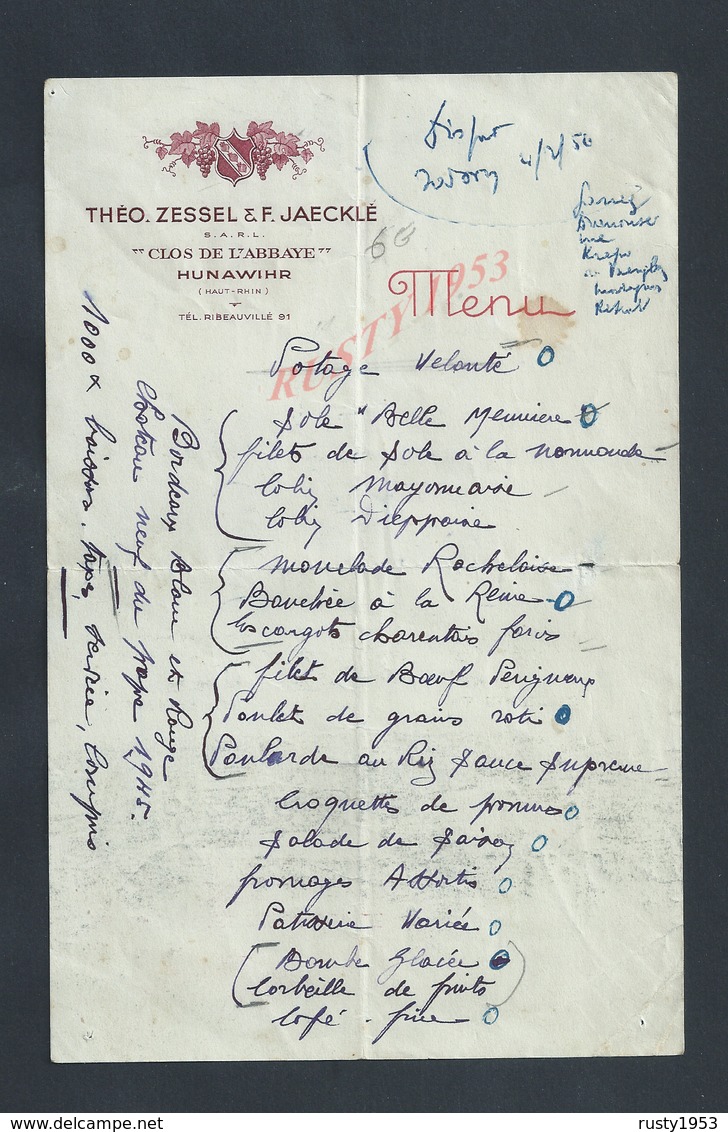 THÉO. ZESSEL & F. JAECKLÉ
S.A.R.L.
"CLOS DE L'ABBAYE"
HUNAWIHR
(HAUT-RHIN)
TÉL. RIBEAUVILLÉ 91
4/2/50
Menu
RUSTY 1953
Potage Velouté
Sole "Belle Meunière
filets de Sole à la normande
Colin Mayonnaise
Colin Dieppoise
Mouclade Rochelaise
Bouchée à la Reine
Escargots charentais farcis
filet de Bœuf Perigueux
Poulet de grains roti
Poularde au Riz Sauce Supreme
Croquettes de pommes
Salade de Saison
fromages Assortis
Patisserie Variée
Bombe Glacée
Corbeille de fruits
Café - fine
Bordeaux blanc et Rouge
Chateau neuf du pape 1945.
boissons, taxe, service, Compris
www.delcampe.net
rusty1953